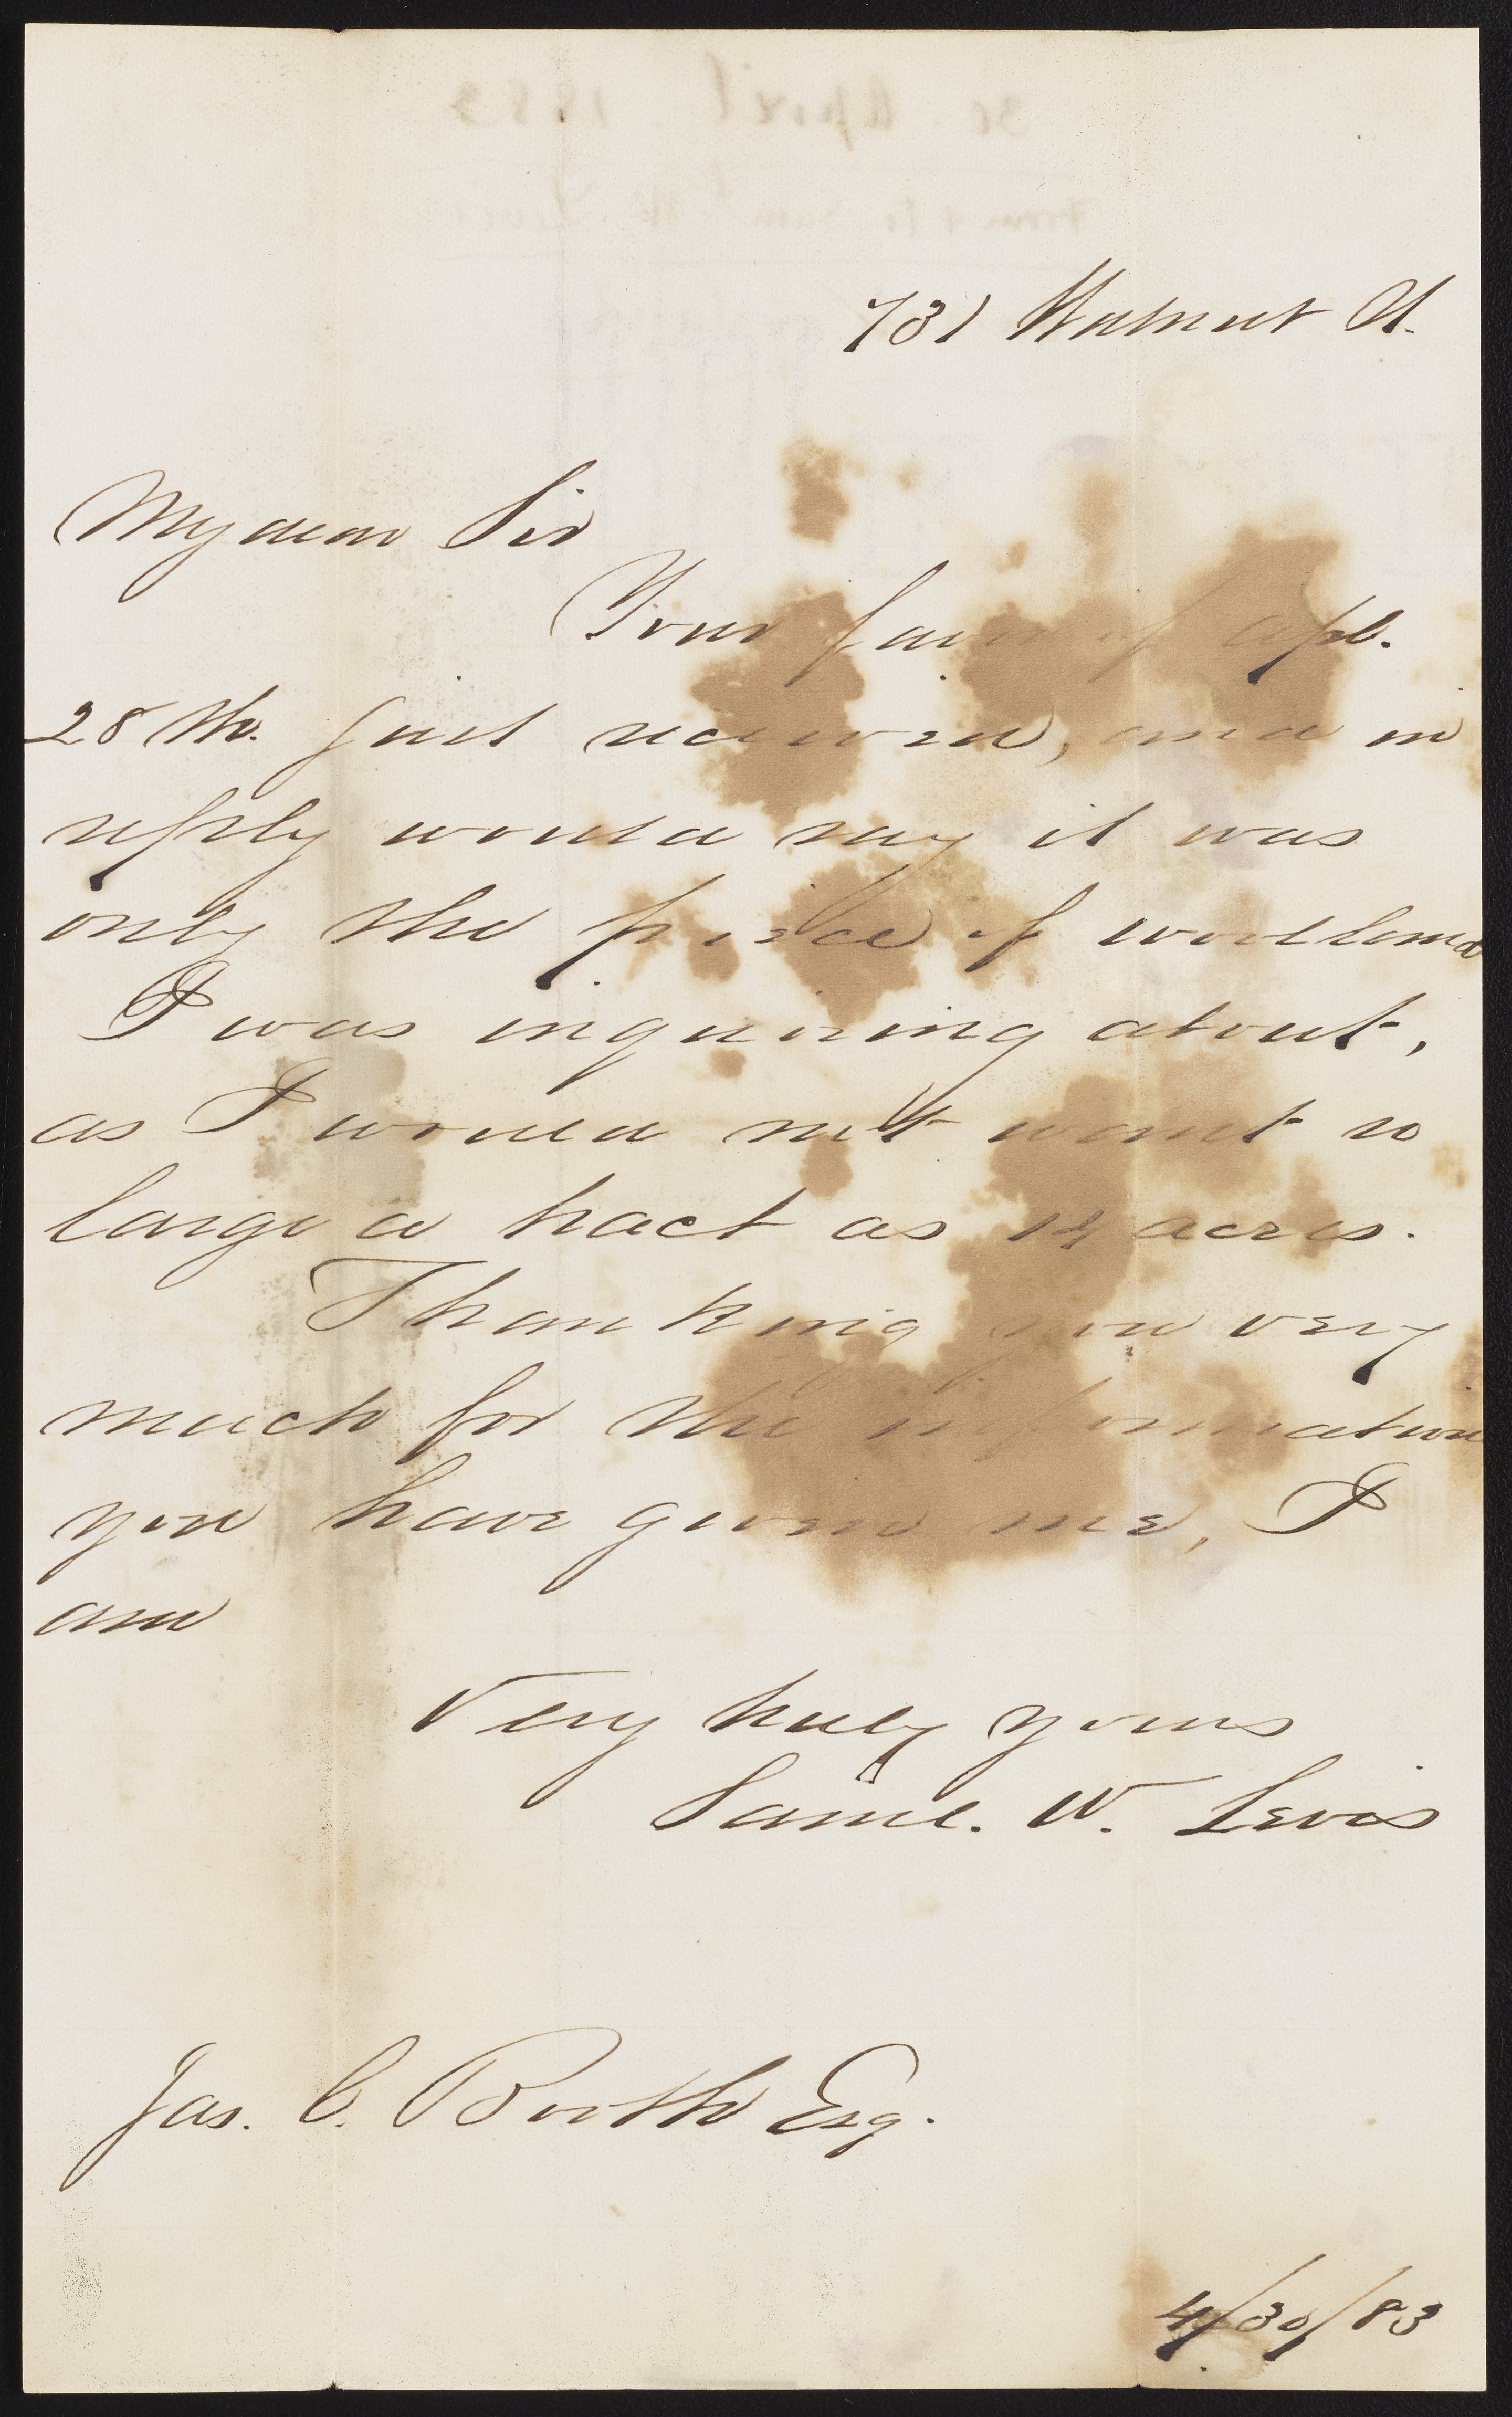 731 Walnut St.
My dear Sir
Your favor of Apl.
28th. just received, and in
reply would say it was
only the piece of woodland
I was inquiring about,
as I would not want so
large a tract as 14 acres.
Thanking you very
much for the information
you have given me, I
am
Very truly yours
Saml. W. Levis
Jas. C. Booth Esq.
4/30/83